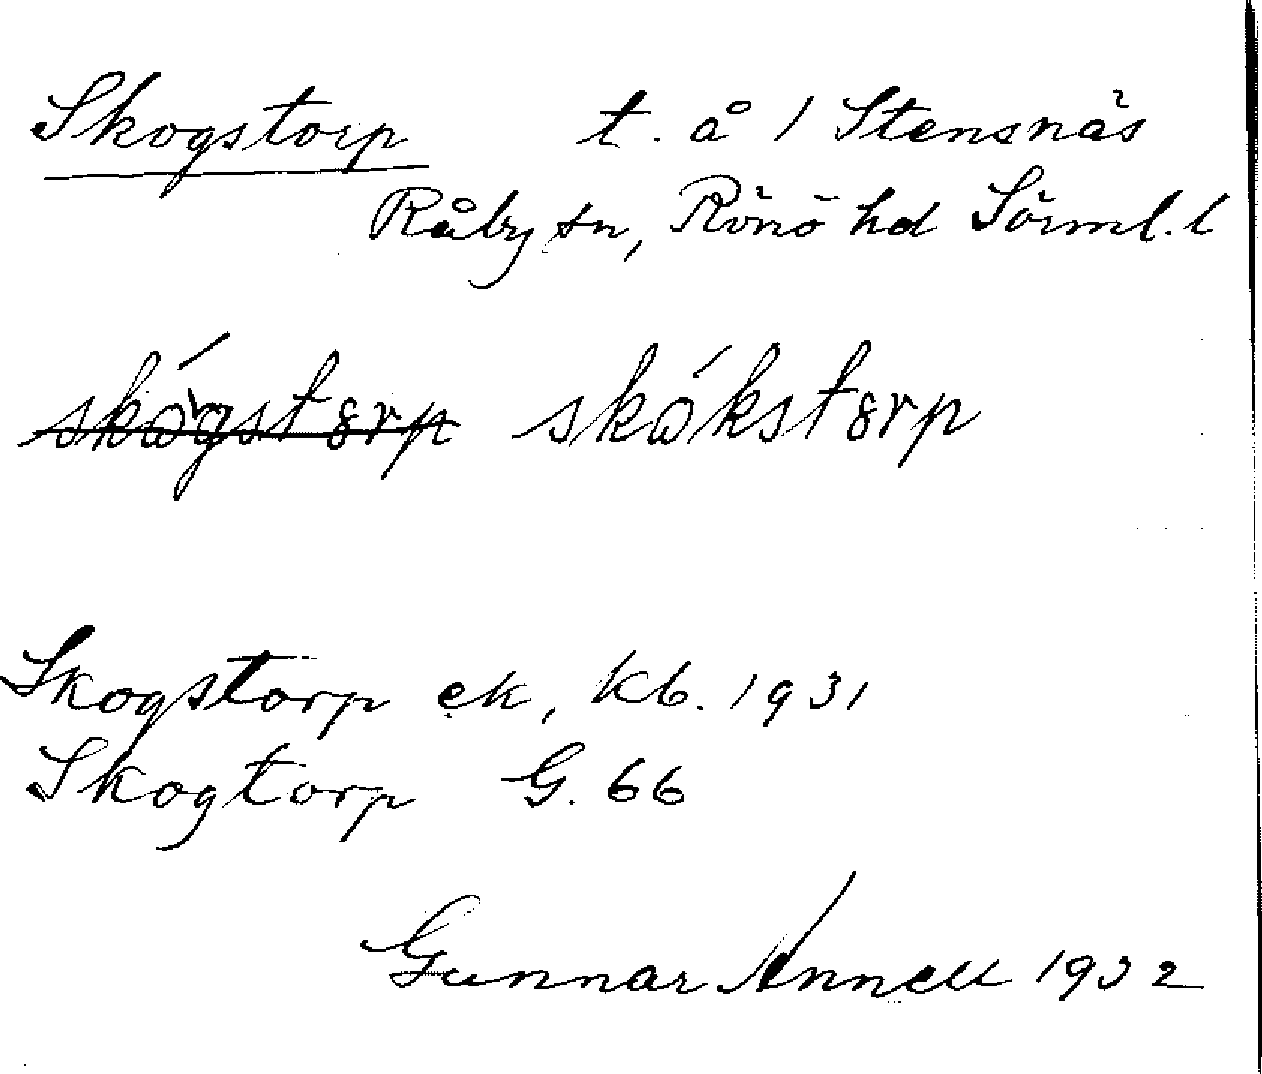 Skogstorp t. å 1 Stensnäs
Råby sn, Rönö hd Sörml. l
skógstorp skókstorp
Skogstorp ek, kb. 1931
Skogtorp G. 66
Gunnar Annell 1932